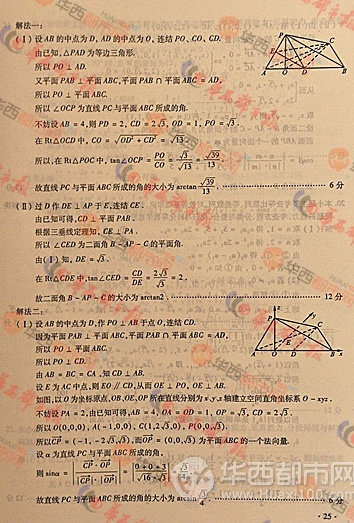 解法一:
(Ⅰ)设AB的中点为D, AD的中点为O, 连结PO、CO、CD.
由已知, △PAD为等边三角形.
所以PO⊥AD.
又平面PAB⊥平面ABC, 平面PAB∩平面ABC=AD,
所以PO⊥平面ABC.
所以∠OCP为直线PC与平面ABC所成的角.
不妨设AB=4, 则PD=2, CD=2√3, OD=1, PO=√3.
在Rt△OCD中, CO=√(OD²+CD²)=√13.
所以, 在Rt△POC中, tan∠OCP=PO/CO=√3/√13=√39/13.
故直线PC与平面ABC所成的角的大小为arctan √39/13. …… 6分
(Ⅱ)过D作DE⊥AP于E, 连结CE.
由已知可得, CD⊥平面PAB.
根据三垂线定理知, CE⊥PA.
所以∠CED为二面角B-AP-C的平面角.
由(Ⅰ)知, DE=√3.
在Rt△CDE中, tan∠CED=CD/DE=2√3/√3=2.
故二面角B-AP-C的大小为arctan2. …… 12分
解法二:
(Ⅰ)设AB的中点为D, 作PO⊥AB于点O, 连结CD.
因为平面PAB⊥平面ABC, 平面PAB∩平面ABC=AB,
所以PO⊥平面ABC.
所以PO⊥CD.
由AB=BC=CA, 知CD⊥AB.
设E为AC中点, 则EO∥CD, 从而OE⊥PO, OE⊥AB.
如图, 以O为坐标原点, OB、OE、OP所在直线分别为x、y、z轴建立空间直角坐标系O-xyz.
不妨设PA=2, 由已知可得, AB=4, OA=OD=1, OP=√3, CD=2√3.
所以O(0,0,0), A(-1,0,0), C(1,2√3,0), P(0,0,√3).
所以CP=(-1,-2√3,√3), 而OP=(0,0,√3)为平面ABC的一个法向量.
设α为直线PC与平面ABC所成的角,
则sinα=|CP·OP/|CP|·|OP||=|0+0+3/√16·√3|=√3/4.
故直线PC与平面ABC所成的角的大小为arcsin √3/4. …… 6分
·25·
华西都市网
www.HDaxi.com